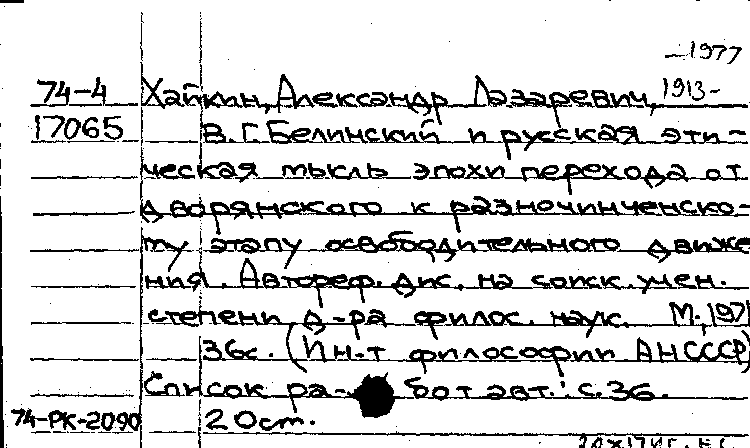 — 1977
74-4 Хайкин, Александр Лазаревич, 1913-
17065 В.Г. Белинский и русская эти-
ческая мысль эпохи перехода от
дворянского к разночинченско-
му этапу освободительного движе
ния. Автореф. дис. на соиск. учен.
степени д-ра филос. наук. М., 197
36с. (Ин-т философии АН СССР)
Список ра- бот авт.: с. 36.
74-РК-2090 20ст.